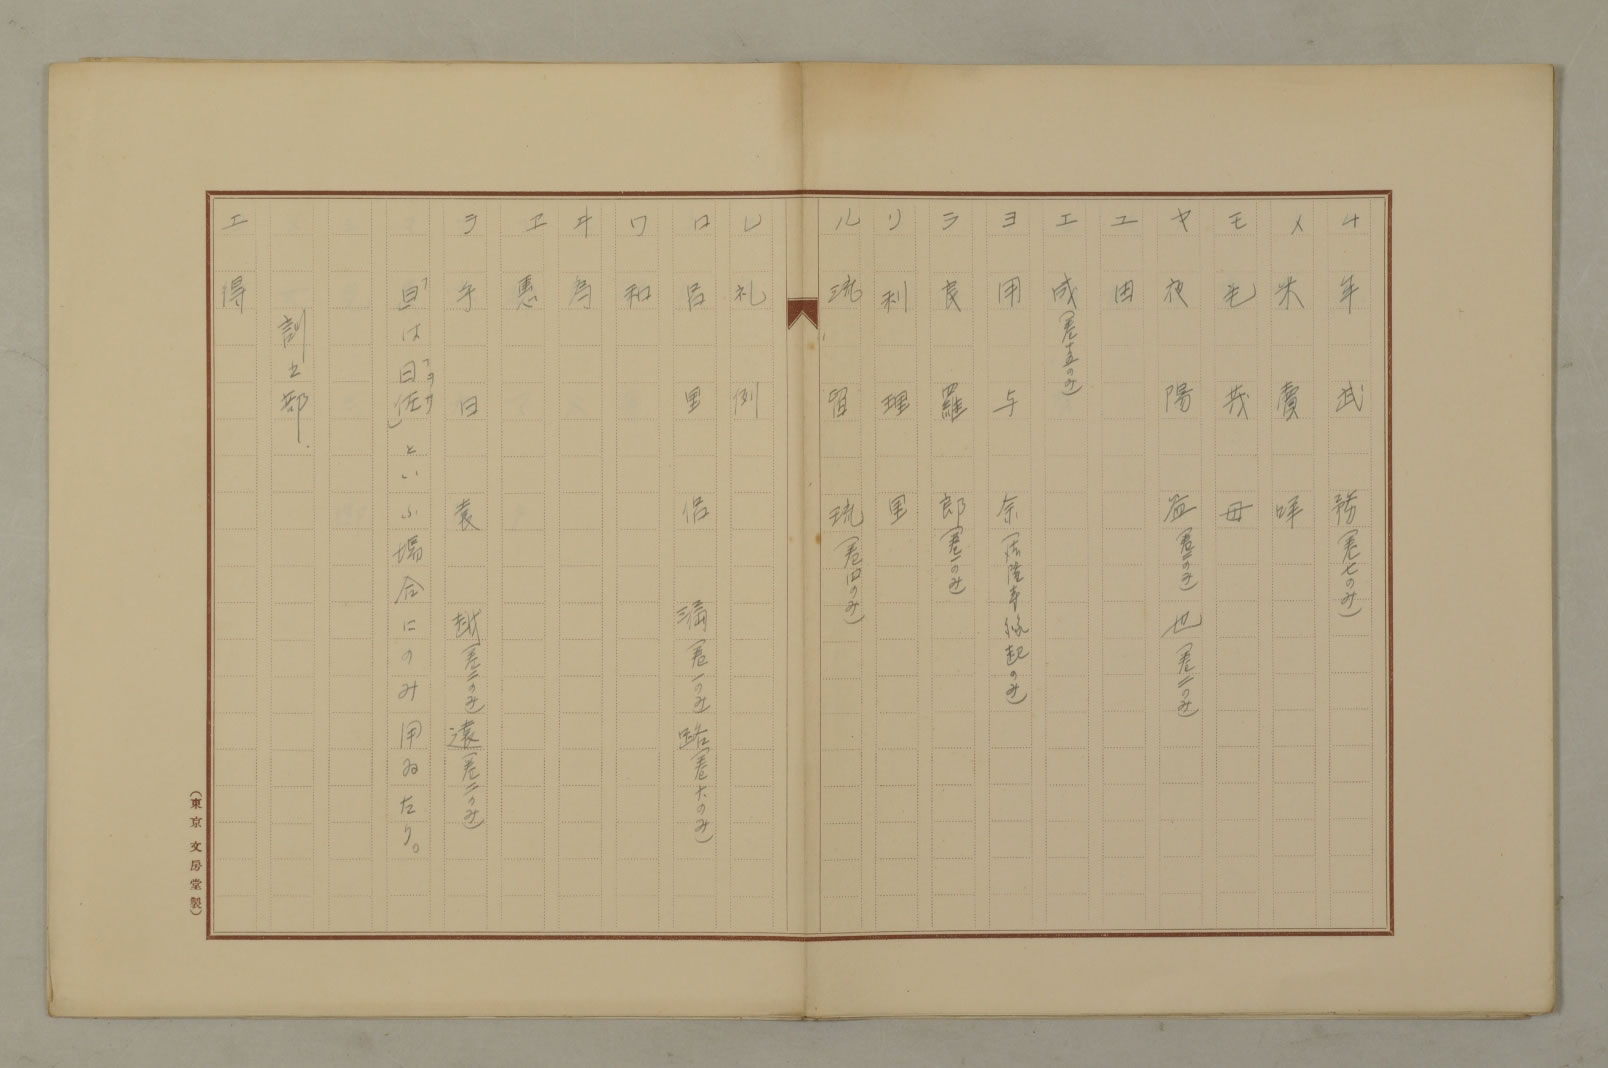 ム 牟 武 務(巻七のみ)
メ 米 賣 咩
モ 毛 茂 母
ヤ 夜 陽 益(巻一のみ) 也(巻一のみ)
ユ 由
エ 成(巻十五のみ)
ヨ 用 与 余(法隆寺縁起のみ)
ラ 良 羅 郎(巻一のみ)
リ 利 理 里
ル 流 留 琉(巻四のみ)
レ 礼 例
ロ 呂 里 侶 漏(巻一のみ) 路(巻十のみ)
ワ 和
ヰ 為
ヱ 恵
ヲ 乎 曰 袁 越(巻二のみ) 遠(巻二のみ)
「曰は曰佐(ヲサ)」といふ場合にのみ用ゐたり。
訓之部.
エ 得
(東京 文房堂製)